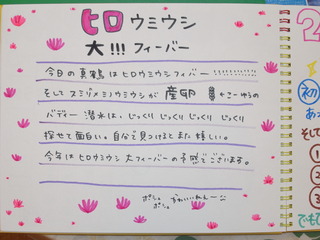 ヒロウミウシ
大!!!フィーバー
今日の真鶴はヒロウミウシフィーバー
そしてスミゾメミノウミウシが産卵
バディー潜水は、じっくり じっくり じっくり じっくり
探せて面白い。自分で見つけるとまた嬉しい。
今年はヒロウミウシ 大フィーバーの予感でございます。
かわいいねぇー
初
あっ
そして
①
②
③
でもて